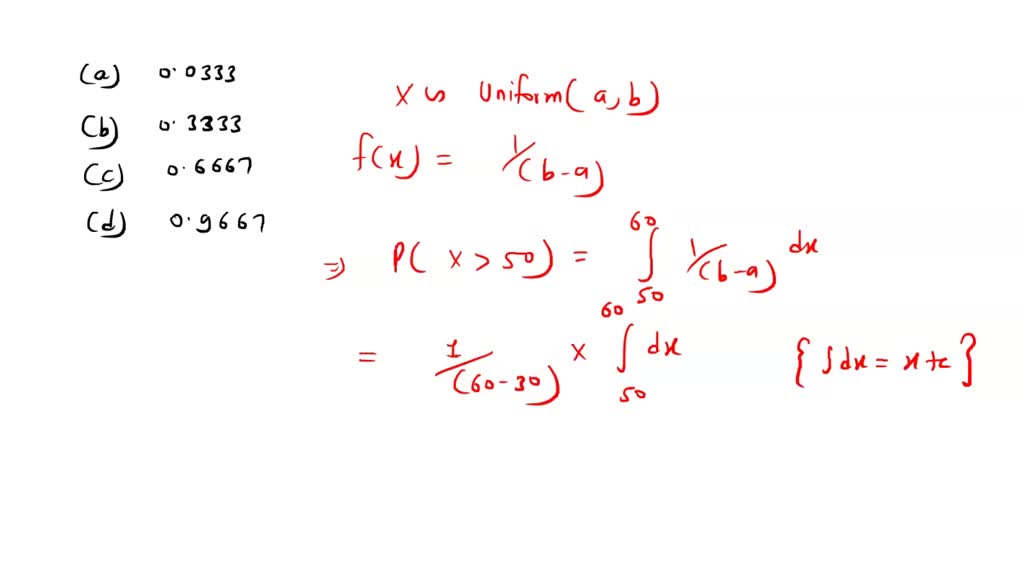 (a) 0.0333
(b) 0.3333
(c) 0.6667
(d) 0.9667
X ∽ Uniform(a,b)
f(x) = 1/(b-a)
⇒ P( X > 50) = ∫₅₀⁶⁰ 1/(b-a) dx
= 1/(60-30) × ∫₅₀⁶⁰ dx {∫dx = x+c}